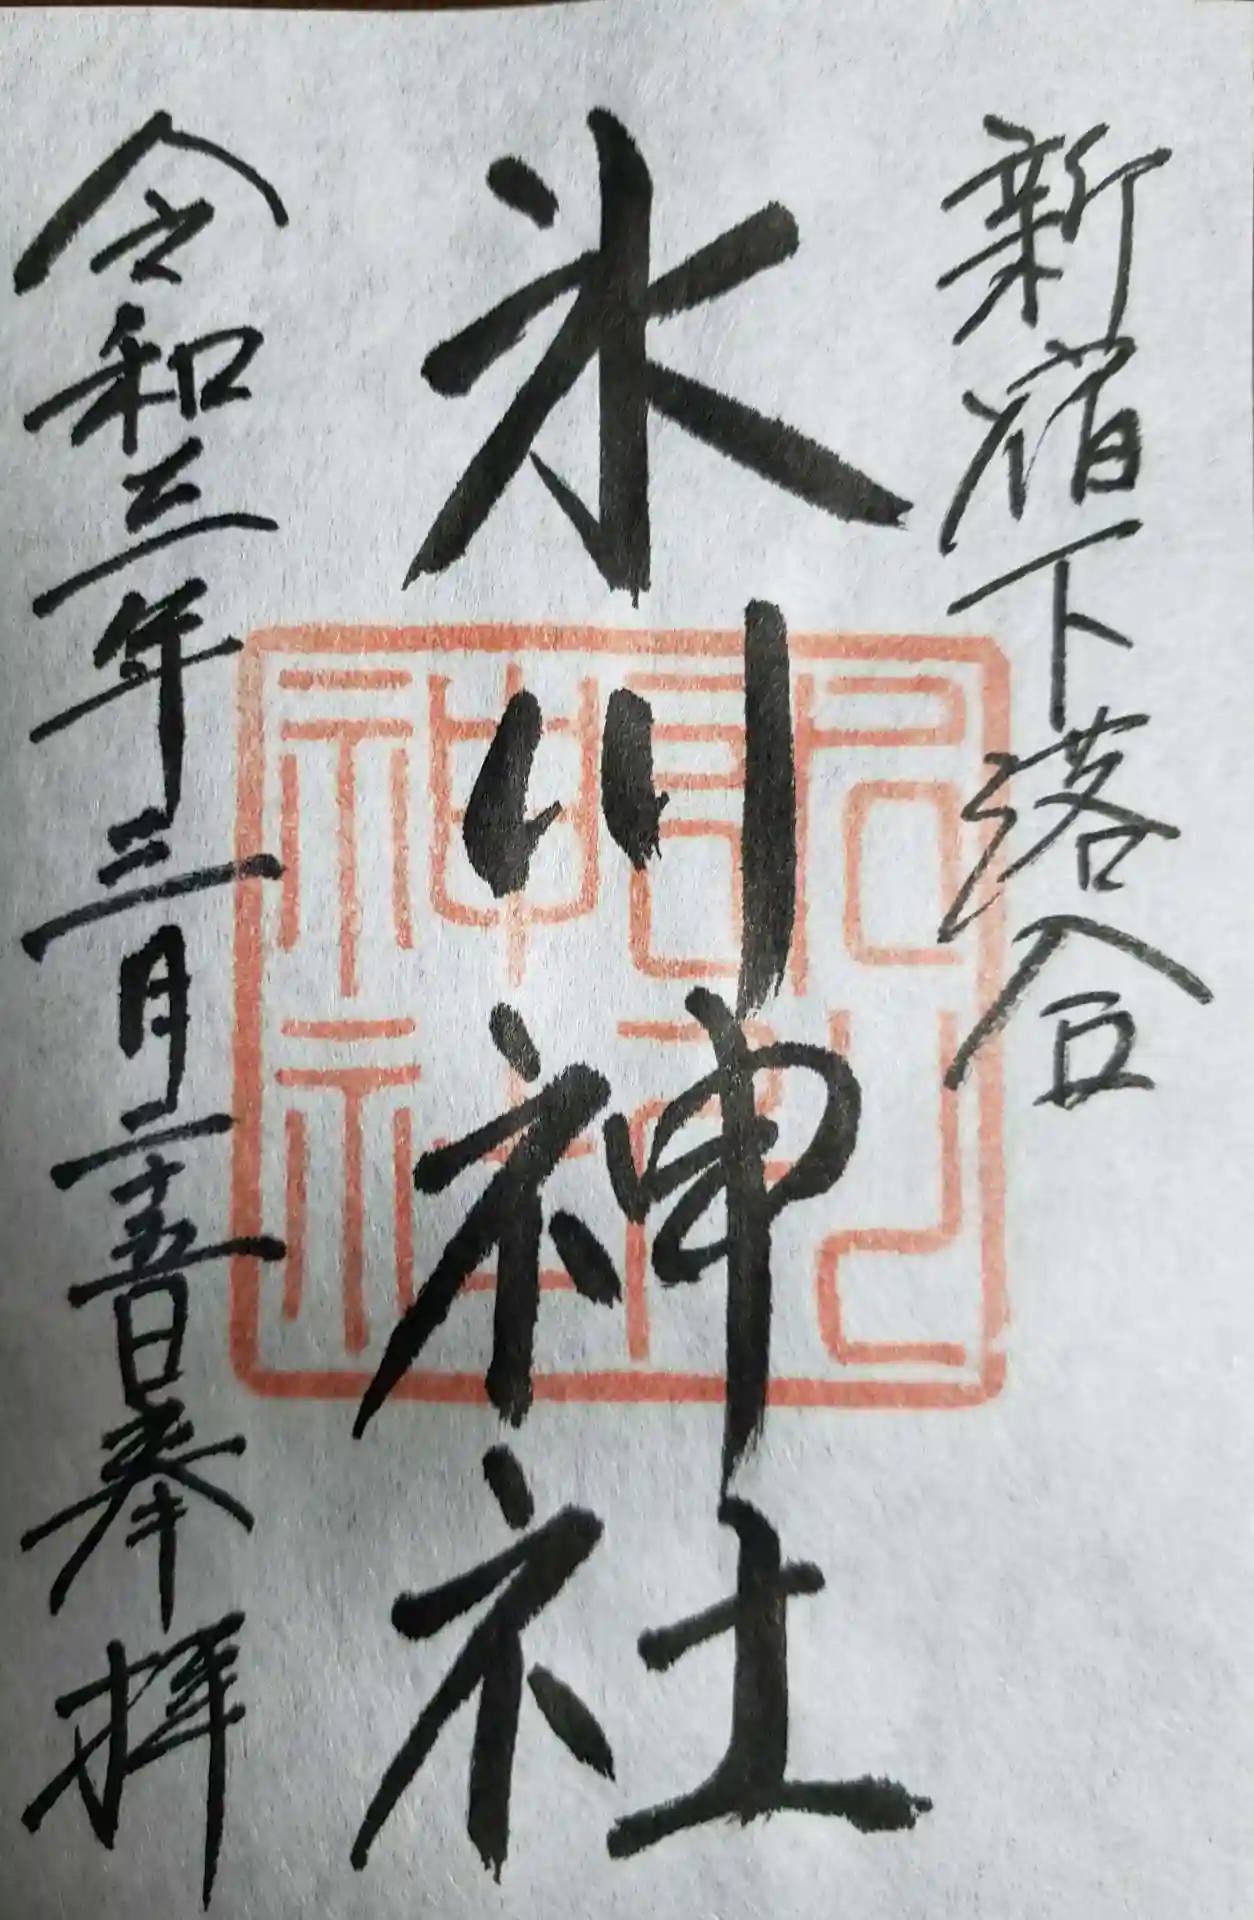 新宿下落合
氷川神社
令和三年三月二十五日奉拝